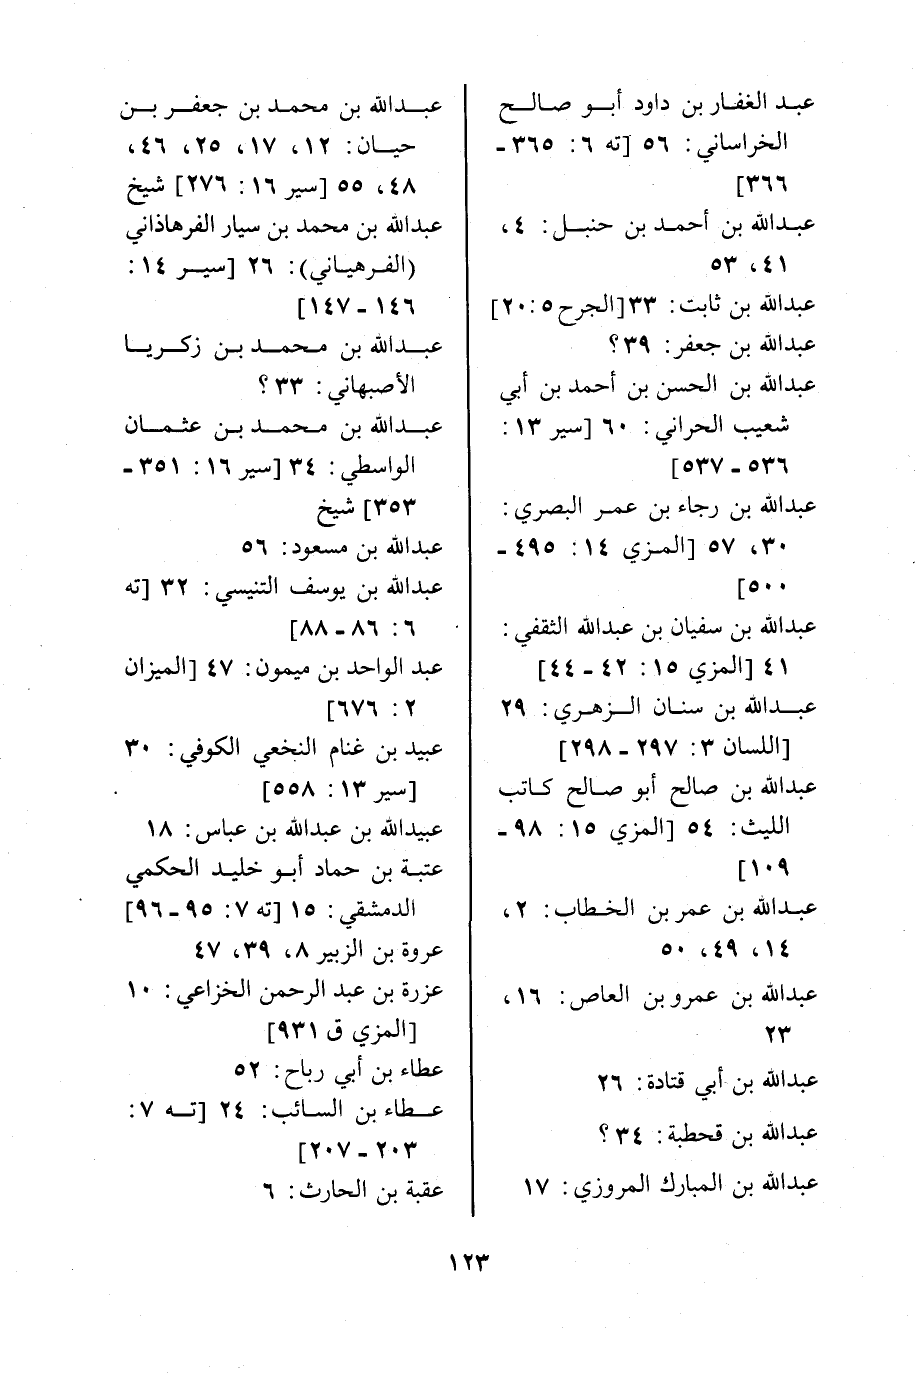 عبد الغفار بن داود أبو صالح
الخراساني: ٥٦ [ته ٦: ٣٦٥ -
٣٦٦]
عبدالله بن أحمد بن حنبل: ٤،
٤١، ٥٣
عبدالله بن ثابت: ٣٣[الجرح٥ :٢٠]
عبدالله بن جعفر: ٣٩؟
عبدالله بن الحسن بن أحمد بن أبي
شعيب الحراني: ٦٠ [سير ١٣:
٥٣٦ - ٥٣٧]
عبدالله بن رجاء بن عمر البصري:
٣٠، ٥٧ [المزي ١٤: ٤٩٥ -
٥٠٠]
عبدالله بن سفيان بن عبدالله الثقفي:
٤١ [المزي ١٥: ٤٢ - ٤٤]
عبدالله بن سنان الزهري: ٢٩
[اللسان ٣: ٢٩٧ - ٢٩٨]
عبدالله بن صالح أبو صالح كاتب
الليث: ٥٤ [المزي ١٥: ٩٨ -
١٠٩]
عبدالله بن عمر بن الخطاب: ٢،
١٤، ٤٩، ٥٠
عبدالله بن عمرو بن العاص: ١٦،
٢٣
عبدالله بن أبي قتادة: ٢٦
عبدالله بن قحطبة: ٣٤؟
عبدالله بن المبارك المروزي: ١٧
عبدالله بن محمد بن جعفر بن
حيان: ١٢، ١٧، ٢٥، ٤٦،
٤٨، ٥٥ [سير ١٦: ٢٧٦] شيخ
عبدالله بن محمد بن سيار الفرهاذاني
(الفرهياني): ٢٦ [سير ١٤:
١٤٦ - ١٤٧]
عبدالله بن محمد بن زكريا
الأصبهاني: ٣٣ ؟
عبدالله بن محمد بن عثمان
الواسطي: ٣٤ [سير ١٦: ٣٥١ -
٣٥٣] شيخ
عبدالله بن مسعود: ٥٦
عبدالله بن يوسف التنيسي: ٣٢ [ته
٦: ٨٦ - ٨٨]
عبد الواحد بن ميمون: ٤٧ [الميزان
٢: ٦٧٦]
عبيد بن غنام النخعي الكوفي: ٣٠
[سير ١٣: ٥٥٨]
عبيدالله بن عبدالله بن عباس: ١٨
عتبة بن حماد أبو خليد الحكمي
الدمشقي: ١٥ [ته ٧: ٩٥ - ٩٦]
عروة بن الزبير ٨، ٣٩، ٤٧
عزرة بن عبد الرحمن الخزاعي: ١٠
[المزي ق ٩٣١]
عطاء بن أبي رباح: ٥٢
عطاء بن السائب: ٢٤ [ته ٧:
٢٠٣ - ٢٠٧]
عقبة بن الحارث: ٦
١٢٣